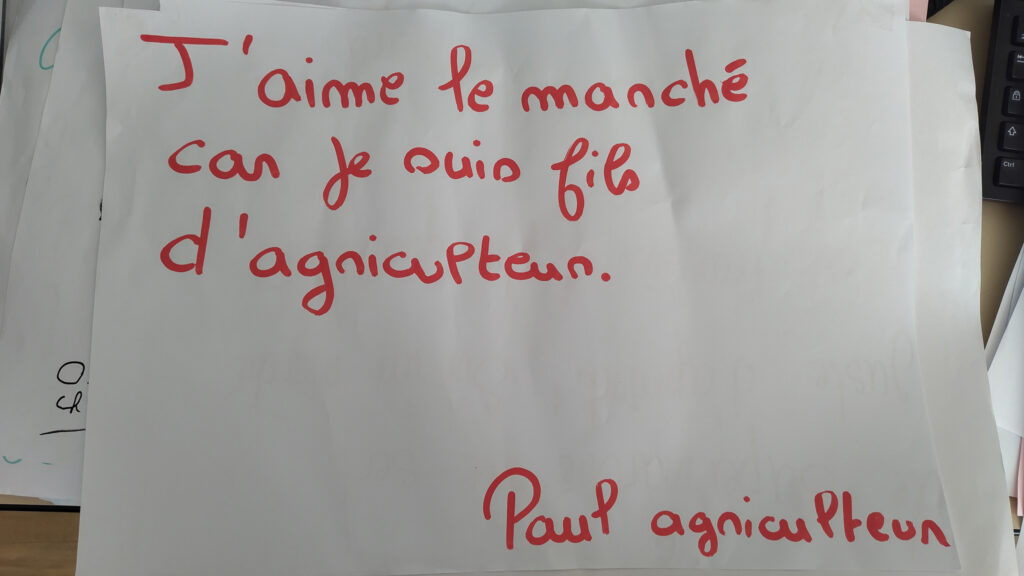 J'aime le manché
car je suis fils
d'agriculteur.
Paul agriculteur
Ctrl